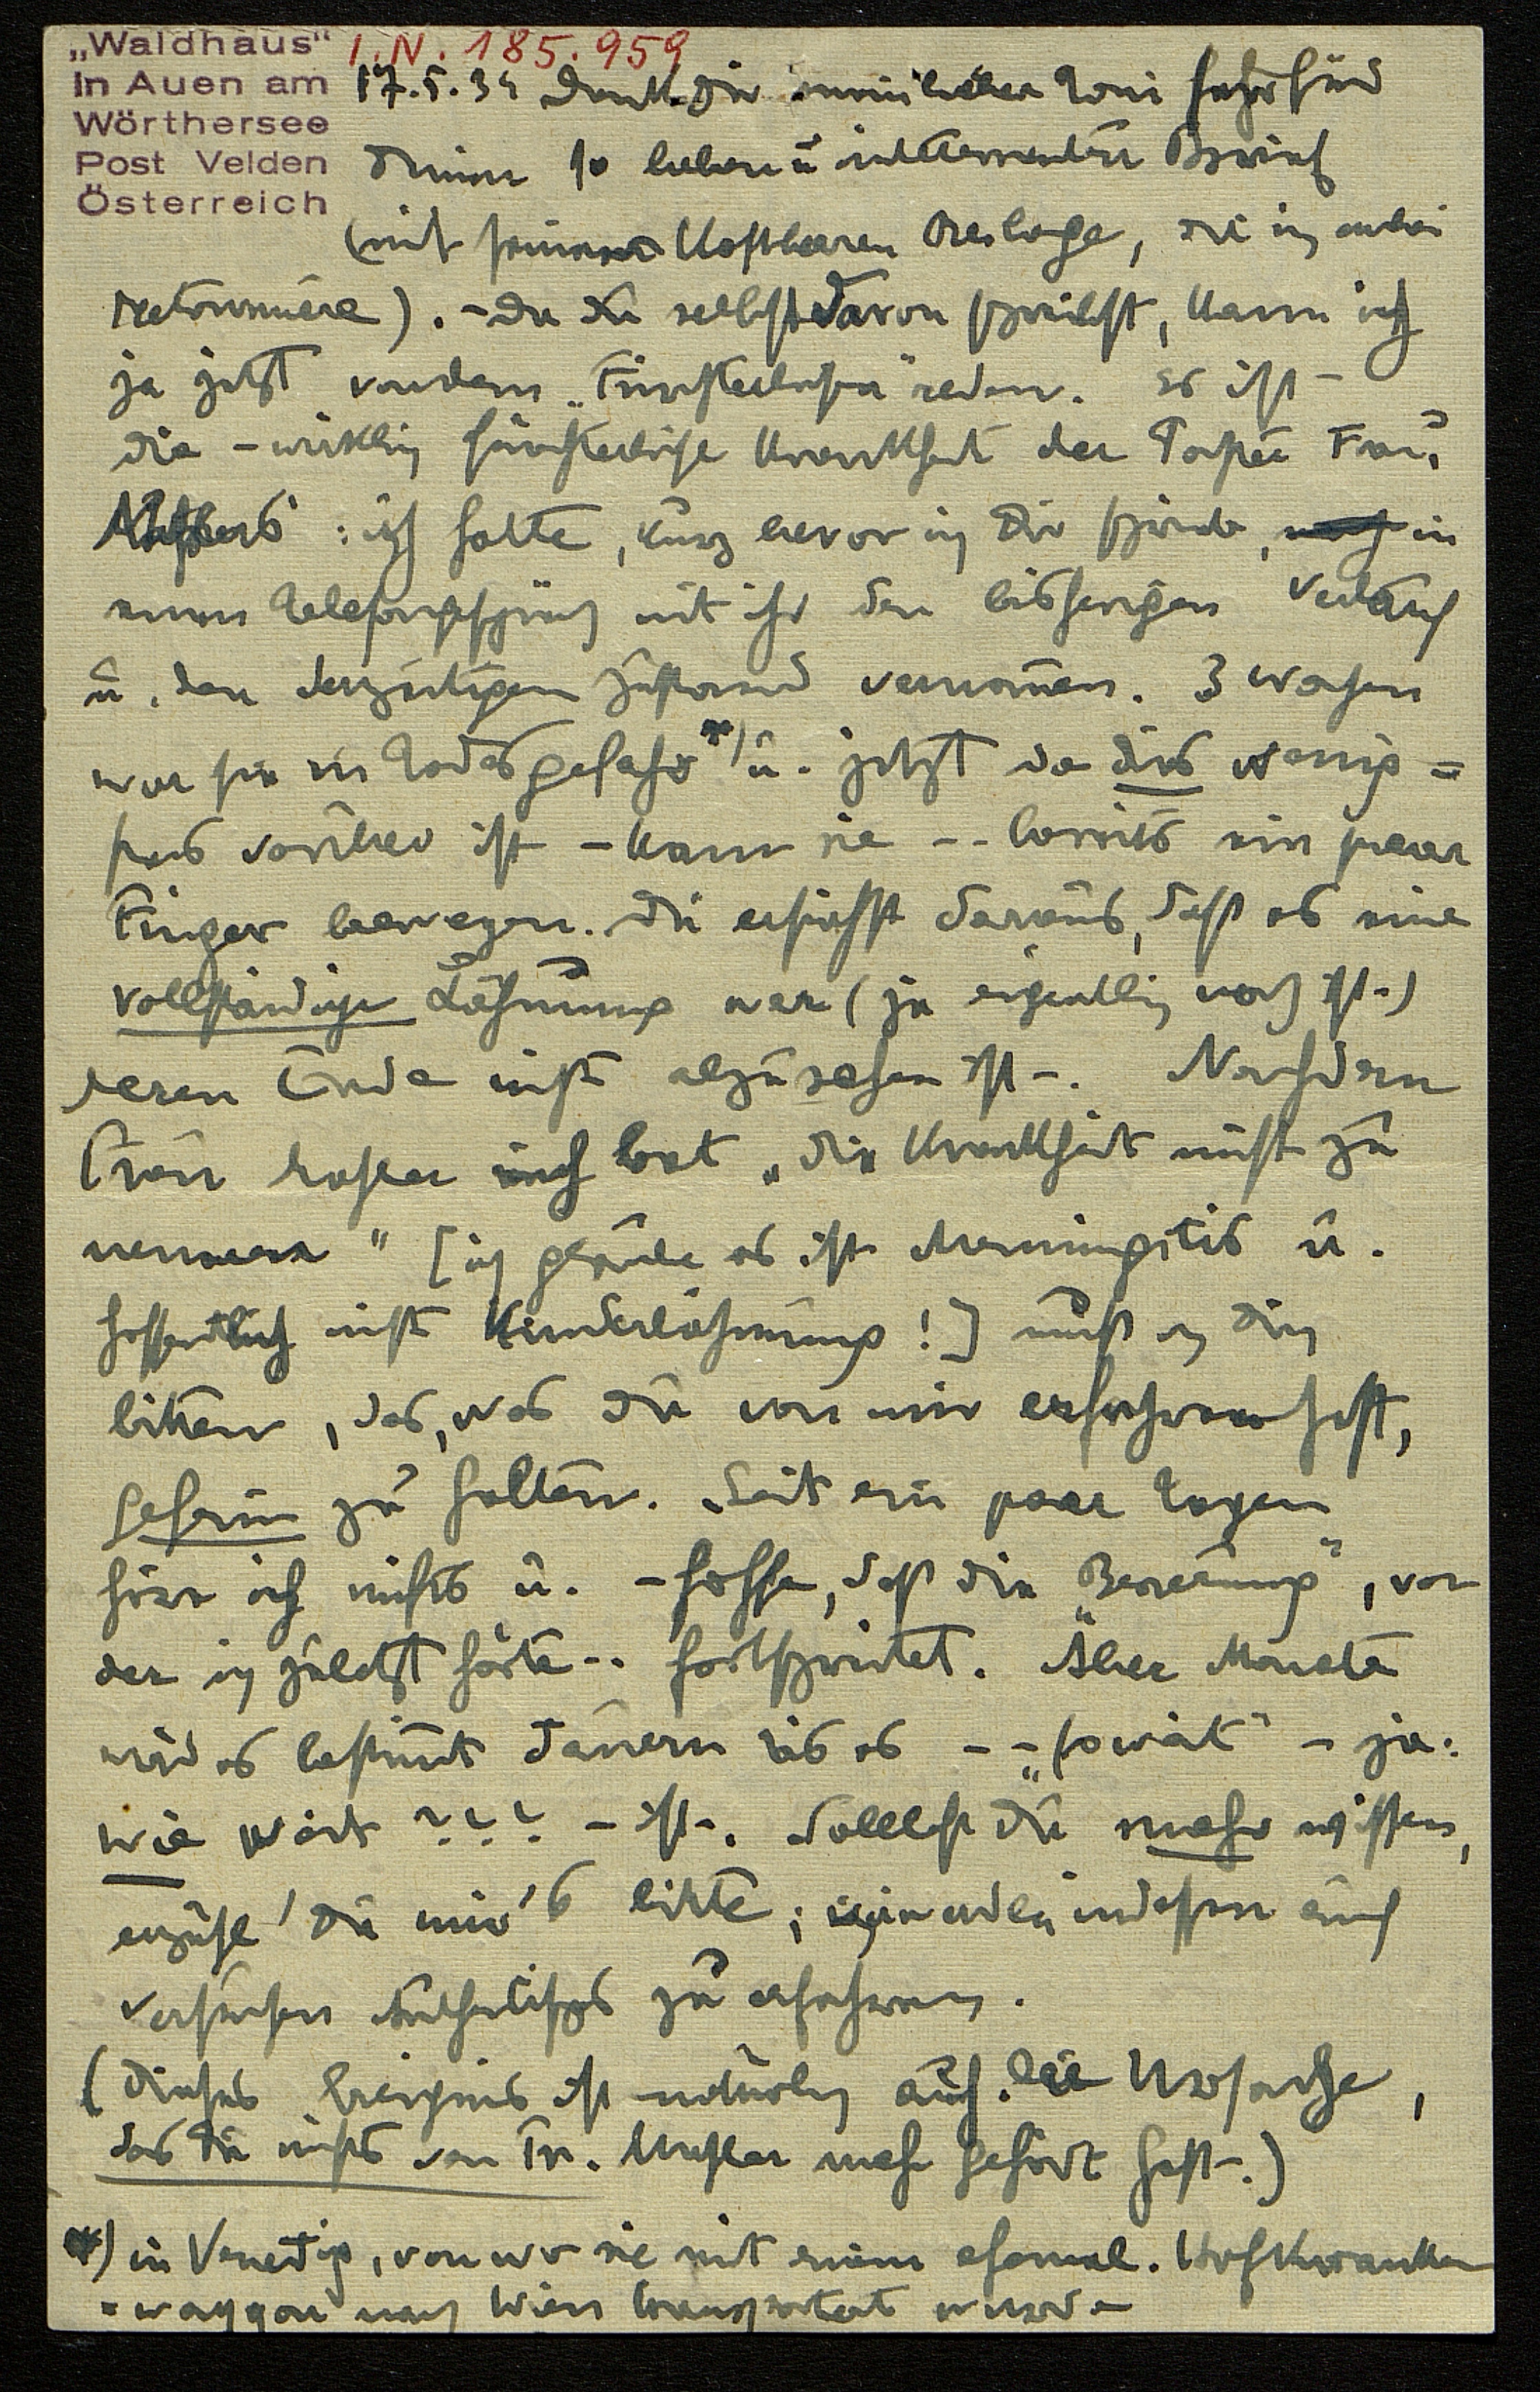 „Waldhaus“
In Auen am
Wörthersee
Post Velden
Österreich
I.N. 185.959
17.5.34 Dank Dir mein lieber Toni sehr für
Deinen so lieben u interessanten Brief
(mit seiner kostbaren Beilage, die ich anbei
retourniere). – Da Du selbst davon schreibst, kann ich
ja jetzt von dem „Fürchterlichen" reden. Es ist –
die – wirklich fürchterliche Krankheit der Tochter Frau
Mahlers: ich hatte, kurz bevor ich Dir schrieb, in
einem Telefongespräch mit ihr den bisherigen Verlauf
u. den derzeitigen Zustand vernommen. 3 Wochen
war sie in Todesgefahr *) u. jetzt da dies wenig=
stens vorüber ist – kann sie -- bereits ein paar
Finger bewegen. Du ersiehst daraus, daß es eine
vollständige Lähmung war (ja eigentlich noch ist –)
deren Ende nicht abzusehen ist –. Nachdem
Frau Mahler mich bat „die Krankheit nicht zu
nennen" [ich glaube es ist Meningitis u.
hoffentlich nicht Kinderlähmung!] muß ich Dich
bitten, das, was Du von mir erfahren hast,
geheim zu halten. Seit ein paar Tagen
höre ich nichts u. – hoffe, daß die „Besserung", von
der ich zuletzt hörte -- fortschreitet. Aber Monate
wird es bestimmt dauern bis es -- „soweit" – ja:
wie weit ??? – ist –. Solltest Du mehr wissen,
erzähl' Du mir's bitte; indessen auch
versuchen Authentisches zu erfahren.
(Dieses Ereignis ist natürlich auch die Ursache,
das Du nichts von Fr. Mahler mehr gehört hast –.)
*) in Venedig, von wo sie mit einem ehemal. Hofkranken
=waggon nach Wien transportiert wurde